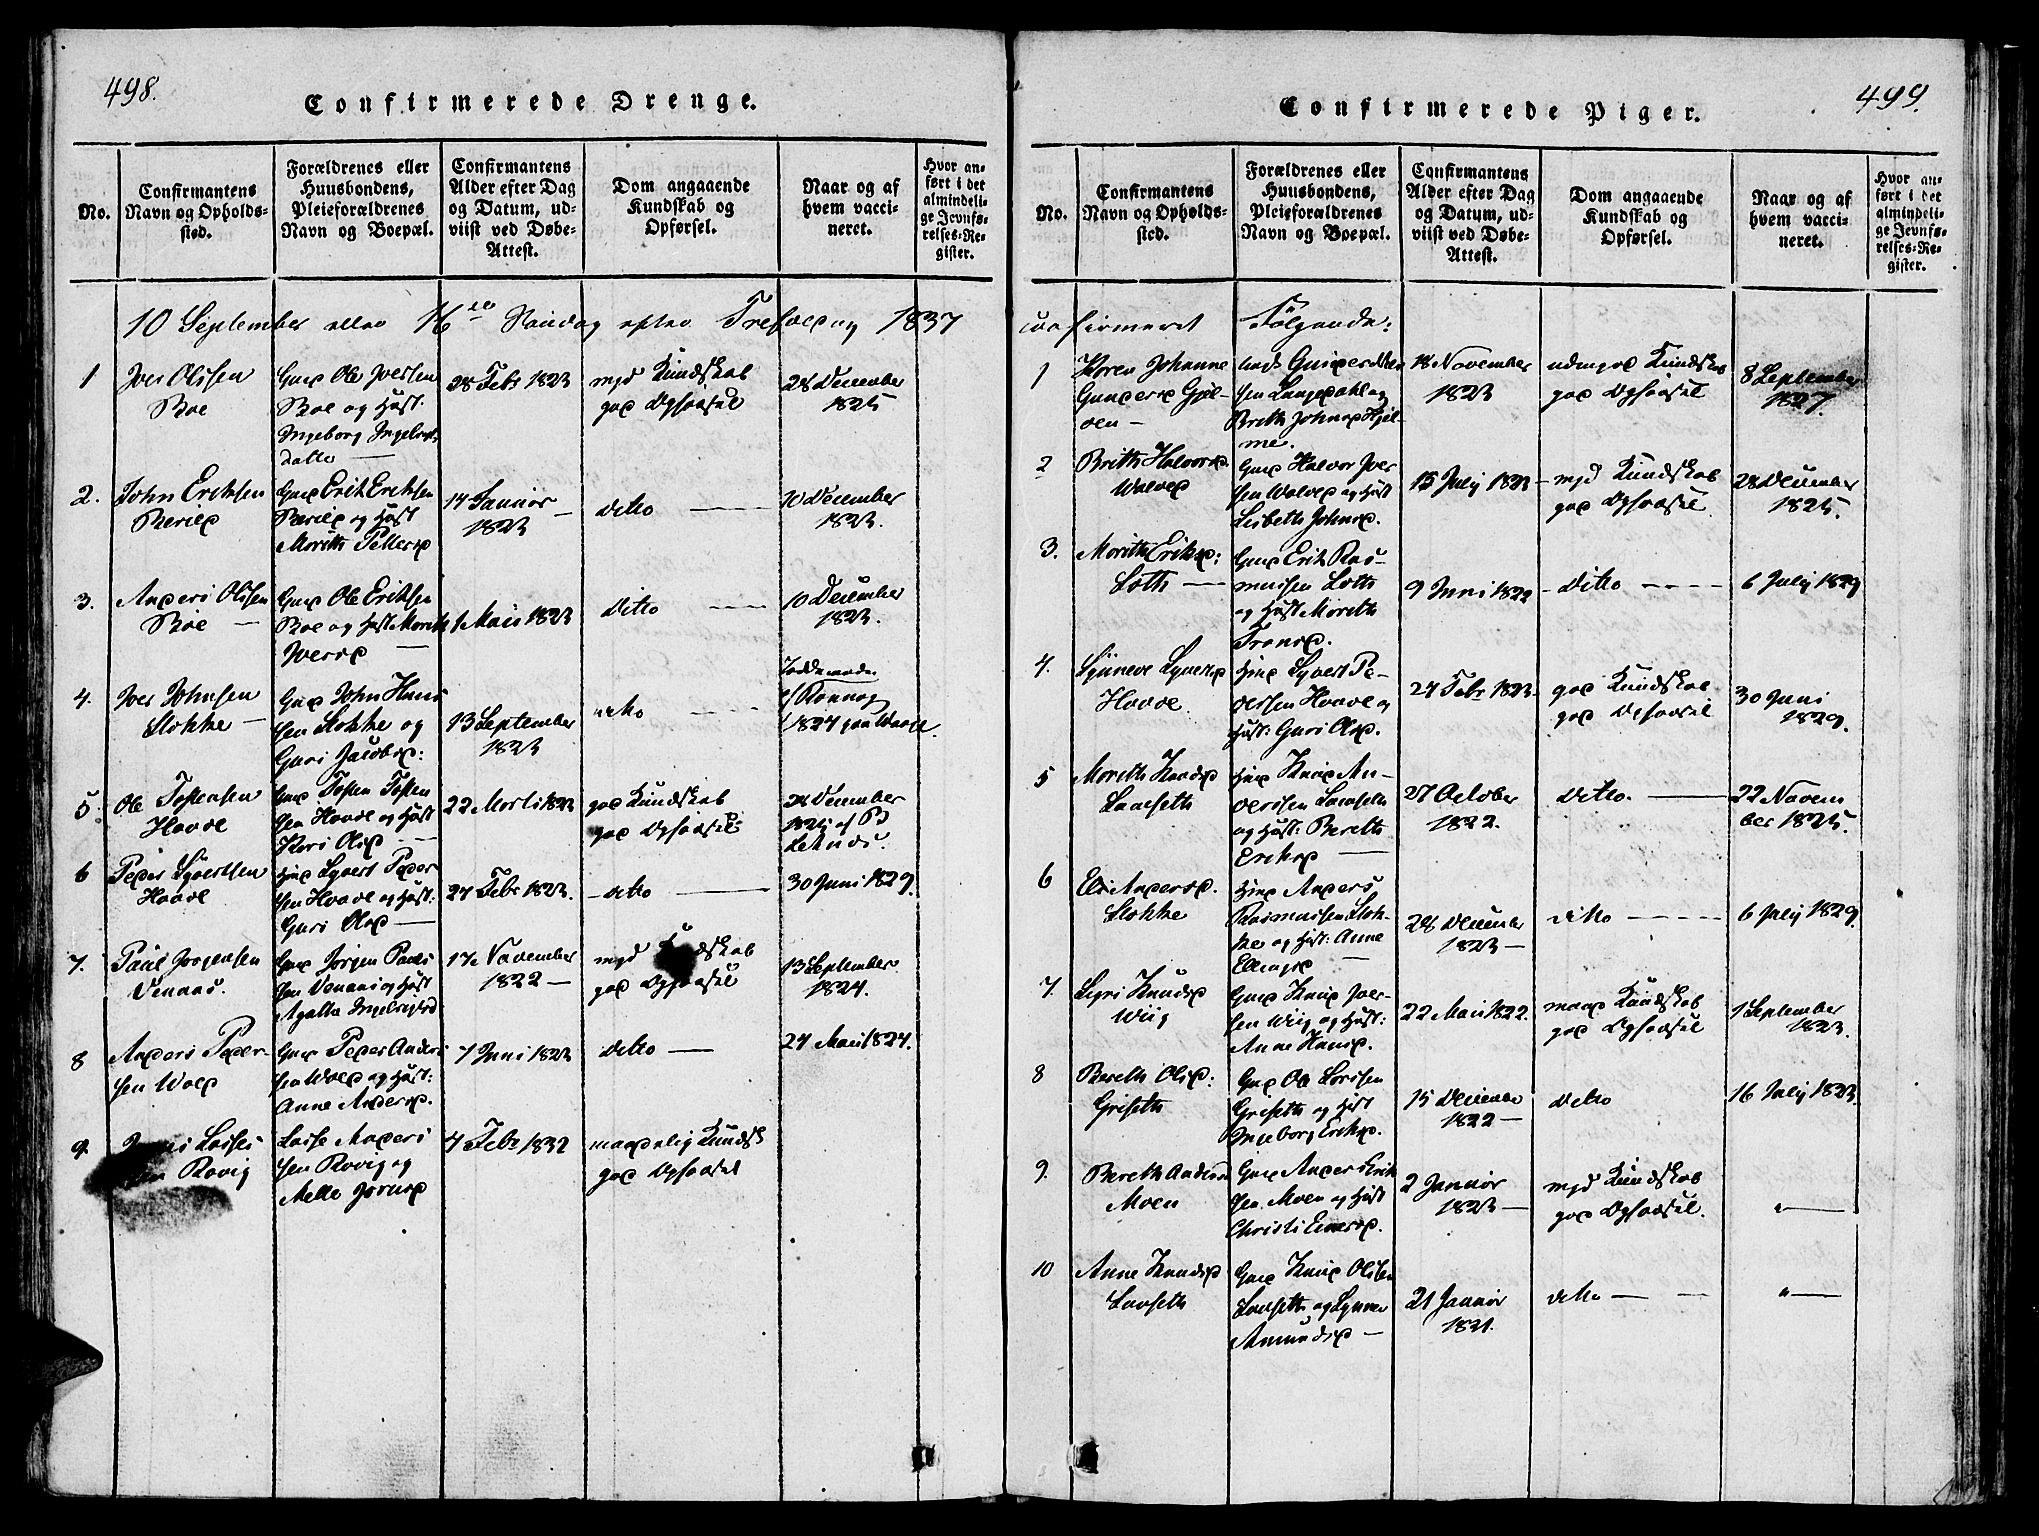 498.
Confirmerede Drenge.
No.
Confirmantens
Navn og Opholds-
sted.
Forældrenes eller
Huusbondens,
Pleieforældrenes
Navn og Boepæl.
Confirmantens
Alder efter Dag
og Datum, ud-
viist ved Døbe-
Attest.
Dom angaaende
Kundskab og
Opførsel.
Naar og af
hvem vacci-
neret.
Hvor an-
ført i det
almindeli-
ge Jevnfø-
relses-Re-
gister.
10 September eller 16de Søndag efter Trefold 1837
1
Iver Olssen
Boe
Gmd Ole Iverssen
Boe og Hust:
Ingeborg Ingebrigts
datter
28 Febr 1823
mgd Kundskab
god Opførsel
28 December
1825
2.
John Eriksen
Gmd Erik Eriksen
og Hust
Marith Pettersd
14 Januar
1823
ditto
10 December
1823.
3.
Anders Olssen
Boe
Gmd Ole Eriksen
Boe og Hust Marith
Iversd
1 Mai 1823
ditto
10 December
1823.
4.
Iver Johnsen
Stokke
Gmd John Hans
sen Stokke og
Guri Jacobsd:
13 September
1823
ditto
1824
5.
Ole Tostensen
Hovde
Gmd Tosten Tosten
sen Hovde og Hust
Kari Olsd
22 Marti 1823
god Kundskab
god Opførsel
28 December
1825 af
6
Peder Syvertsen
Hovde
Hmd Syvert Peder
sen Hovde og Hust:
Guri Olsd
24 Febr 1823.
ditto
30 Juni 1829.
7.
Paul Jørgensen
Venaas.
Gmd Jørgen Pauls
sen Venaas og Hust
Agathe Ingebrigtsd
17 November
1822
mgd Kundskab
god Opførsel
13 September
1824.
8
Anders Peder-
sen
Gmd Peder Anders
sen og Hust:
Anne Andersd.
7 Juni 1823
ditto
24 Mai 1824.
9.
Lasses
sen Rovig
Lasse Anders
sen Rovig og
4 Febr 1832
maadelig Kundsk
god Opførsel
499.
Confirmerede Piger.
No.
Confirmantens
Navn og Opholds-
sted.
Forældrenes eller
Huusbondens,
Pleieforældrenes
Navn og Boepæl.
Confirmantens
Alder efter Dag
og Datum, ud-
viist ved Døbe-
Attest.
Dom angaaende
Kundskab og
Opførsel.
Naar og af
hvem vacci-
neret.
Hvor an-
ført i det
almindeli-
ge Jevnfø-
relses-Re-
gister.
confirmeret Følgende:
1
Karen Johanne
Gundersd
sen Langedahl og
Brith Johnsd Hjel-
me.
18 November
1823
udmgod Kundskab
god Opførsel
8 September
1827.
2
Brith Halvorsd.
Gmd Halvor Iver
sen og Hust
Lisbeth Johnsd.
15 July 1823
mgd Kundskab
god Opførsel
28 December
1825.
3.
Marith Eriksd:
Loth
Gmd Erik Ras-
mussen Loth
og Hust Marith
Tronsd.
9 Juni 1822
ditto
6 July 1829
4.
Synneve Syvertsd
Hovde
Hmd Syvert Pe-
dersen Hovde og
Hust: Guri Olsd.
24 Febr 1823
god Kundskab
god Opførsel
30 Juni
1829.
5
Marith Knudsd
Laaseth
Hmd Knud An-
dersen Laaseth
og Hust: Bereth
Eriksd
27 October
1822.
ditto
22 Novem
ber 1825.
6
Eli Andersd.
Stokke
Hmd Anders
Rasmussen Stok-
ke og Hust: Anne
Ellingsd
28 December
1823
ditto
6 July 1829
7.
Siri Knudsd
Wiig
Gmd Knud Iver-
sen Wiig og Hust:
Anne Hansd.
22 Mai 1822.
maad Kundskab
god Opførsel
1 September
1823.
8
Bereth Olsd:
Griseth
Gmd Ole Larssen
Griseth og Hust
Ingeborg Eriksd.
15 December
1822
ditto
16 July 1823.
9.
Bereth Andersd
Moen
Gmd Anders Erik
sen Moen og Hust
Christi Einersd.
2 Januar
1823
mgd Kundskab
god Opførsel.
"
10
Anne Knudsd
Laaseth
Gmd Knud Olssen
Laaseth og Synnev
Amundsd
21 Januar
1821.
ditto
"